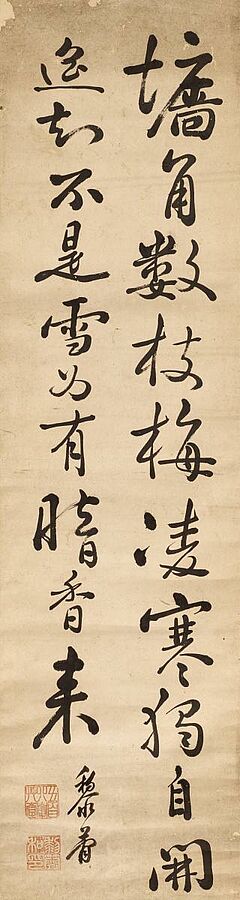 墻角數枝梅凌寒獨自開
遙知不是雪為有暗香来